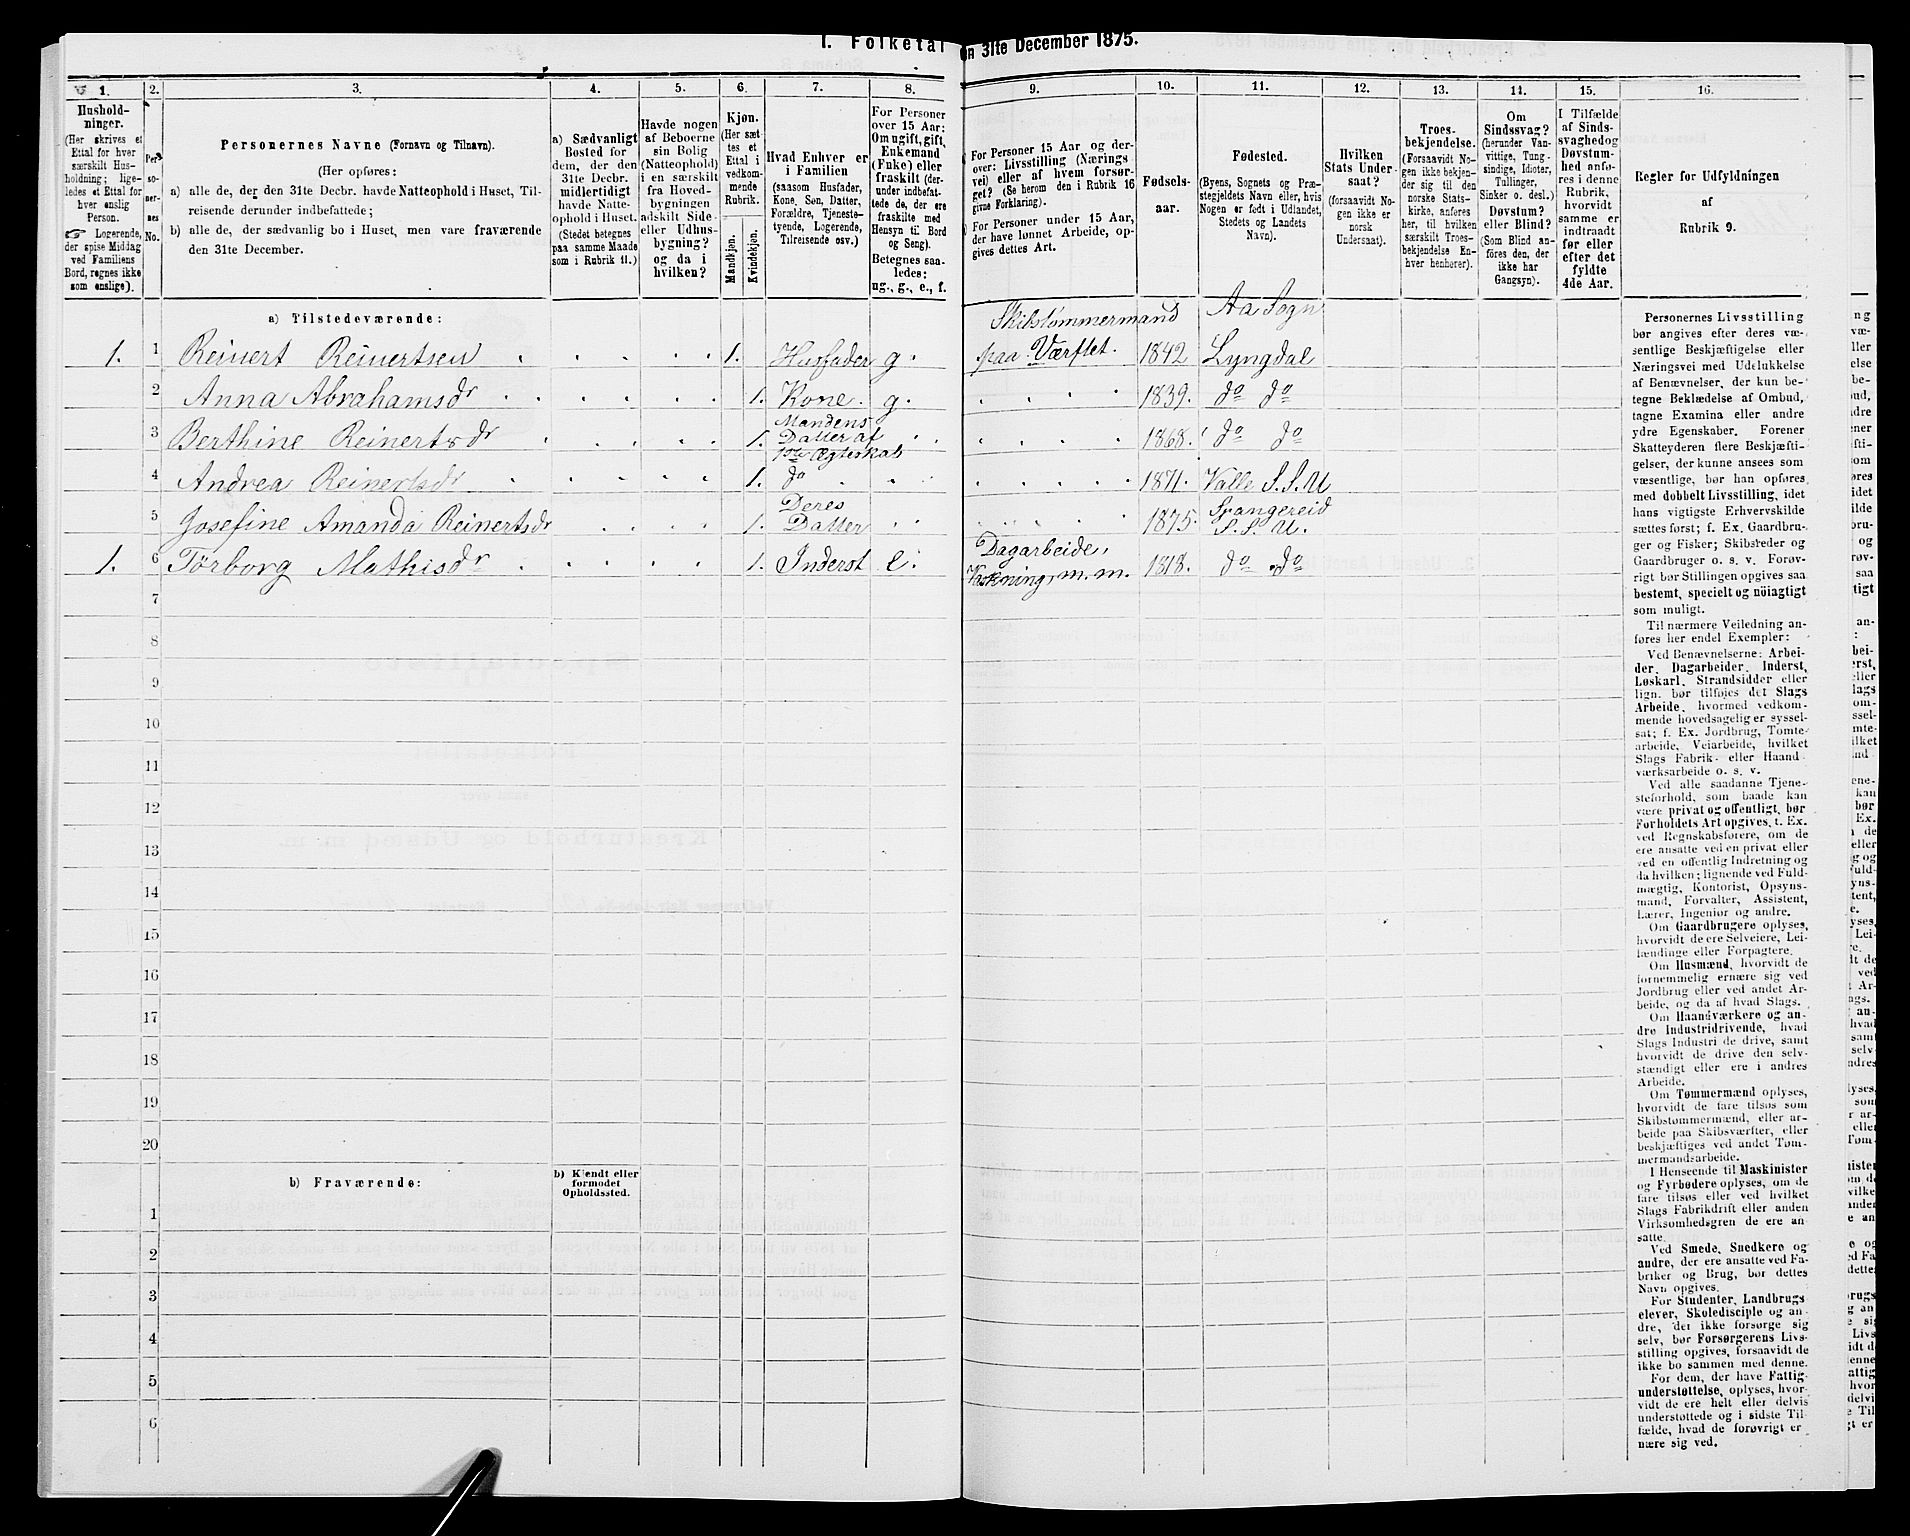 1. Folketal
en 31te December 1875.
1.
Hushold-
ninger.
(Her skrives et
Ettal for hver
særskilt Hus-
holdning; lige-
ledes et Ettal for
hver enslig
Person.
☞ Logerende,
der spise Middag
ved Familiens
Bord, regnes ikke
som enslige).
2.
Per-
so-
ner-
nes
No.
3.
Personernes Navne (Fornavn og Tilnavn).
(Her opføres:
a) alle de, der den 31te Decbr. havde Natteophold i Huset, Til-
reisende derunder indbefattede;
b) alle de, der sædvanlig bo i Huset, men vare fraværende
den 31te December.
4.
a) Sædvanligt
Bosted for
dem, der den
31te Decbr.
midlertidigt
havde Natte-
ophold i Huset.
(Stedet betegnes
paa samme Maade
som i Rubrik 11.)
5.
Havde nogen
af Beboerne
sin Bolig
(Natteophold)
i en særskilt
fra Hoved-
bygningen
adskilt Side-
eller Udhus-
bygning?
og da i
hvilken?
6.
Kjøn.
(Her sæt-
tes et
Ettal i
vedkom-
mende
Rubrik.
Mandkjøn.
Kvindekjøn.
7.
Hvad Enhver er
i Familien
(saasom Husfader,
Kone, Søn, Datter,
Forældre, Tjeneste-
tyende, Logerende,
Tilreisende osv.)
8.
For Personer
over 15 Aar:
Om ugift, gift,
Enkemand
(Enke) eller
fraskilt (der-
under indbefat-
tede de, der ere
fraskilte med
Hensyn til Bord
og Seng).
Betegnes saa-
ledes:
ug., g., e., f.
9.
For Personer 15 Aar og der-
over: Livsstilling (Nærings
vei) eller af hvem forsør-
get? (Se herom den i Rubrik 16
givne Forklaring).
For Personer under 15 Aar,
der have lønnet Arbeide, op-
gives dettes Art.
10.
Fødsels-
aar.
11.
Fødested.
(Byens, Sognets og Præ-
stegjeldets Navn eller, hvis
Nogen er født i Udlandet,
Stedets og Landets
Navn).
12.
Hvilken
Stats Under-
saat?
(forsaavidt No-
gen ikke er
norsk
Undersaat).
13.
Troes-
bekjendelse.
(Forsaavidt No-
gen ikke bekjen-
der sig til den
norske Stats-
kirke, anføres
her, til hvilken
særskilt Troes-
bekjendelse En-
hver henhører).
14.
Om
Sindssvag?
(herunder Van-
vittige, Tung-
sindige, Idioter,
Tullinger,
Sinker o. desl.)
Døvstum?
eller Blind?
(Som Blind an-
føres den, der
ikke har
Gangsyn).
15.
I Tilfælde
af Sinds-
svaghed og
Døvstum-
hed anfø-
res i denne
Rubrik,
hvorvidt
samme er
indtraadt
før eller
efter det
fyldte
4de Aar.
16.
Regler for Udfyldningen
af
Rubrik 9.
a) Tilstedeværende:
Skibstømmermand Aa Sogn
1. 1 Reinert Reinertsen 1. Husfader g. paa Værftet. 1842 Lyngdal
2 Anna Abrahamsdr 1. Kone. g. 1839. do do
Mandens
3 Berthine Reinertsdr 1. Datter af 1868. do do
1ste Ægteskab
4 Andrea Reinertsdr 1. do 1871. Valle S. S. U
Deres Spangereid
5 Josefine Amanda Reinertsdr 1. Datter 1875. S. S. U.
Dagarbeide,
1. 6 Tørborg Mathisdr 1. Inderst e. Vaskning, m. m. 1818. do do
7
8
9
10
11
12
13
14
15
16
17
18
19
20
b) Fraværende:
b) Kjendt eller
formodet
Opholdssted.
1
2
3
4
5
6
Personernes Livsstilling
bør angives efter deres væ-
sentlige Beskjæftigelse eller
Næringsvei med Udelukkelse
af Benævnelser, der kun be-
tegne Beklædelse af Ombud,
tagne Examina eller andre
ydre Egenskaber. Forener
Skatteyderen flere Beskjæfti-
gelser, der kunne ansees som
væsentlige, bør han opføres
med dobbelt Livsstilling, idet
hans vigtigste Erhvervskilde
sættes først; f. Ex. Gaardbru-
ger og Fisker; Skibsreder og
Gaardbruger o. s. v. Forøv-
rigt bør Stillingen opgives saa
bestemt, specielt og nöiagtigt
som muligt.
Til nærmere Veiledning an-
føres her endel Exempler:
Ved Benævnelserne: Arbei-
der, Dagarbeider, Inderst,
Løskarl, Strandsidder eller
lign. bør tilføies det Slags
Arbeide, hvormed vedkom-
mende hovedsagelig er syssel-
sat; f. Ex. Jordbrug, Tomte-
arbeide, Veiarbeide, hvilket
Slags Fabrik- eller Haand
værksarbeide o. s. v.
Ved alle saadanne Tjene-
steforhold, som baade kan
være privat og offentligt, bør
Forholdets Art opgives, t. Ex.
ved Regnskabsførere, om de
ere ansatte ved en privat eller
ved en offentlig Indretning og
da hvilken; lignende ved Fuld-
mægtig, Kontorist, Opsyns-
mand, Forvalter, Assistent,
Lærer, Ingeniør og andre.
Om Gaardbrugere oplyses,
hvorvidt de ere Selveiere, Lei-
lændinge eller Forpagtere.
Om Husmænd, hvorvidt de
fornemmelig ernære sig ved
Jordbrug eller ved andet Ar-
beide, og da af hvad Slags.
Om Haandværkere og an-
dre Industridrivende, hvad
Slags Industri de drive, samt
hvorvidt de drive den selv-
stændigt eller ere i andres
Arbeide.
Om Tømmermænd oplyses,
hvorvidt de fare tilsøs som
Skibstømmermænd, eller ar-
beide paa Skibsværfter, eller
beskjæftiges ved andet Tøm-
mermandsarbeide.
I Henseende til Maskinister
og Fyrbødere oplyses, om de
fare tilsøs eller ved hvilket
Slags Fabrikdrift eller anden
Virksomhedsgren de ere an-
satte.
Ved Smede, Snedkere og
andre, der ere ansatte ved Fa-
briker og Brug, bør dettes
Navn opgives.
For Studenter, Landbrugs
elever, Skoledisciple og an-
dre, der ikke forsørge sig
selv, bør Forsørgerens Livs-
stilling opgives, forsaavidt de
ikke bo sammen med denne.
For dem, der have Fattig-
understøttelse, oplyses, hvor-
vidt de ere helt eller delvis
understøttede og i sidste Til-
fælde, hvad de forøvrigt er-
nære sig ved.